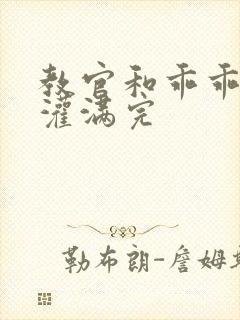 教官和乖乖
灌满完
勒布朗-詹姆斯